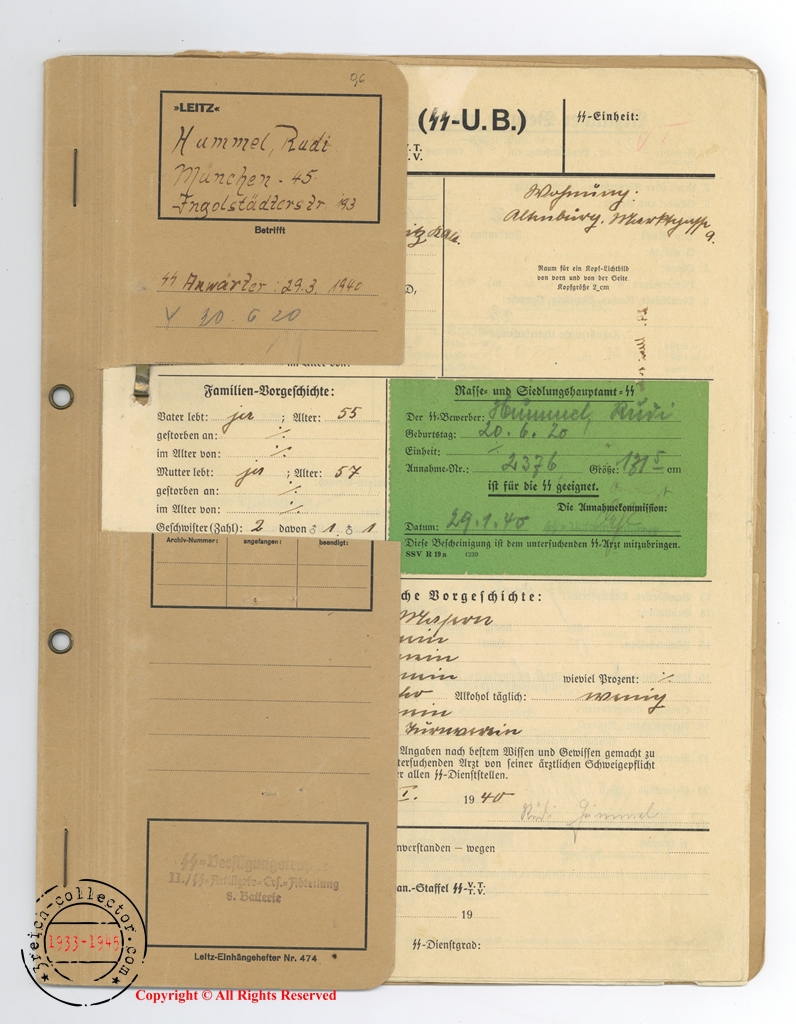 96
»LEITZ«
Hummel, Rudi
München - 45
Ingolstädterstr 193
Betrifft
SS Anwärter: 29.3. 1940
20. 6 20
(SS-U.B.)
SS-Einheit:
V.T.
T.V.
Wohnung:
Altenburg, Marktgasse
9.
Raum für ein Kopf-Lichtbild
von vorn und von der Seite
Kopfgröße 2 cm
im Alter von:
Familien-Vorgeschichte:
Vater lebt: ja ; Alter: 55
gestorben an: ·/·
im Alter von: ·/·
Mutter lebt: ja ; Alter: 57
gestorben an: ·/·
im Alter von: ·/·
Geschwister (Zahl): 2 davon ♂ 1 ♀ 1
Rasse- und Siedlungshauptamt-SS
Der SS-Bewerber: Hummel, Rudi
Geburtstag: 20. 6. 20
Einheit:
Annahme-Nr.: 2376 Größe: 171 5 cm
ist für die SS geeignet.
Die Annahmekommission:
Datum: 29.1.40
Diese Bescheinigung ist dem untersuchenden SS-Arzt mitzubringen.
SSV R 19 a
Archiv-Nummer: angefangen: beendigt:
che Vorgeschichte:
Masern
nein
nein
nein wieviel Prozent: ·/·
Alkohol täglich: wenig
nein
Turnverein
Angaben nach bestem Wissen und Gewissen gemacht zu
tersuchenden Arzt von seiner ärztlichen Schweigepflicht
r allen SS-Dienststellen.
I. 19 40
Rudi Hummel
nverstanden – wegen
an.-Staffel SS-V.T.
T.V.
19
SS-Dienstgrad:
SS-Verfügungstruppe
II./SS-Artillerie-Ers.-Abteilung
8. Batterie
Leitz-Einhängehefter Nr. 474
3reich-collector.com
1933-1945
Copyright © All Rights Reserved